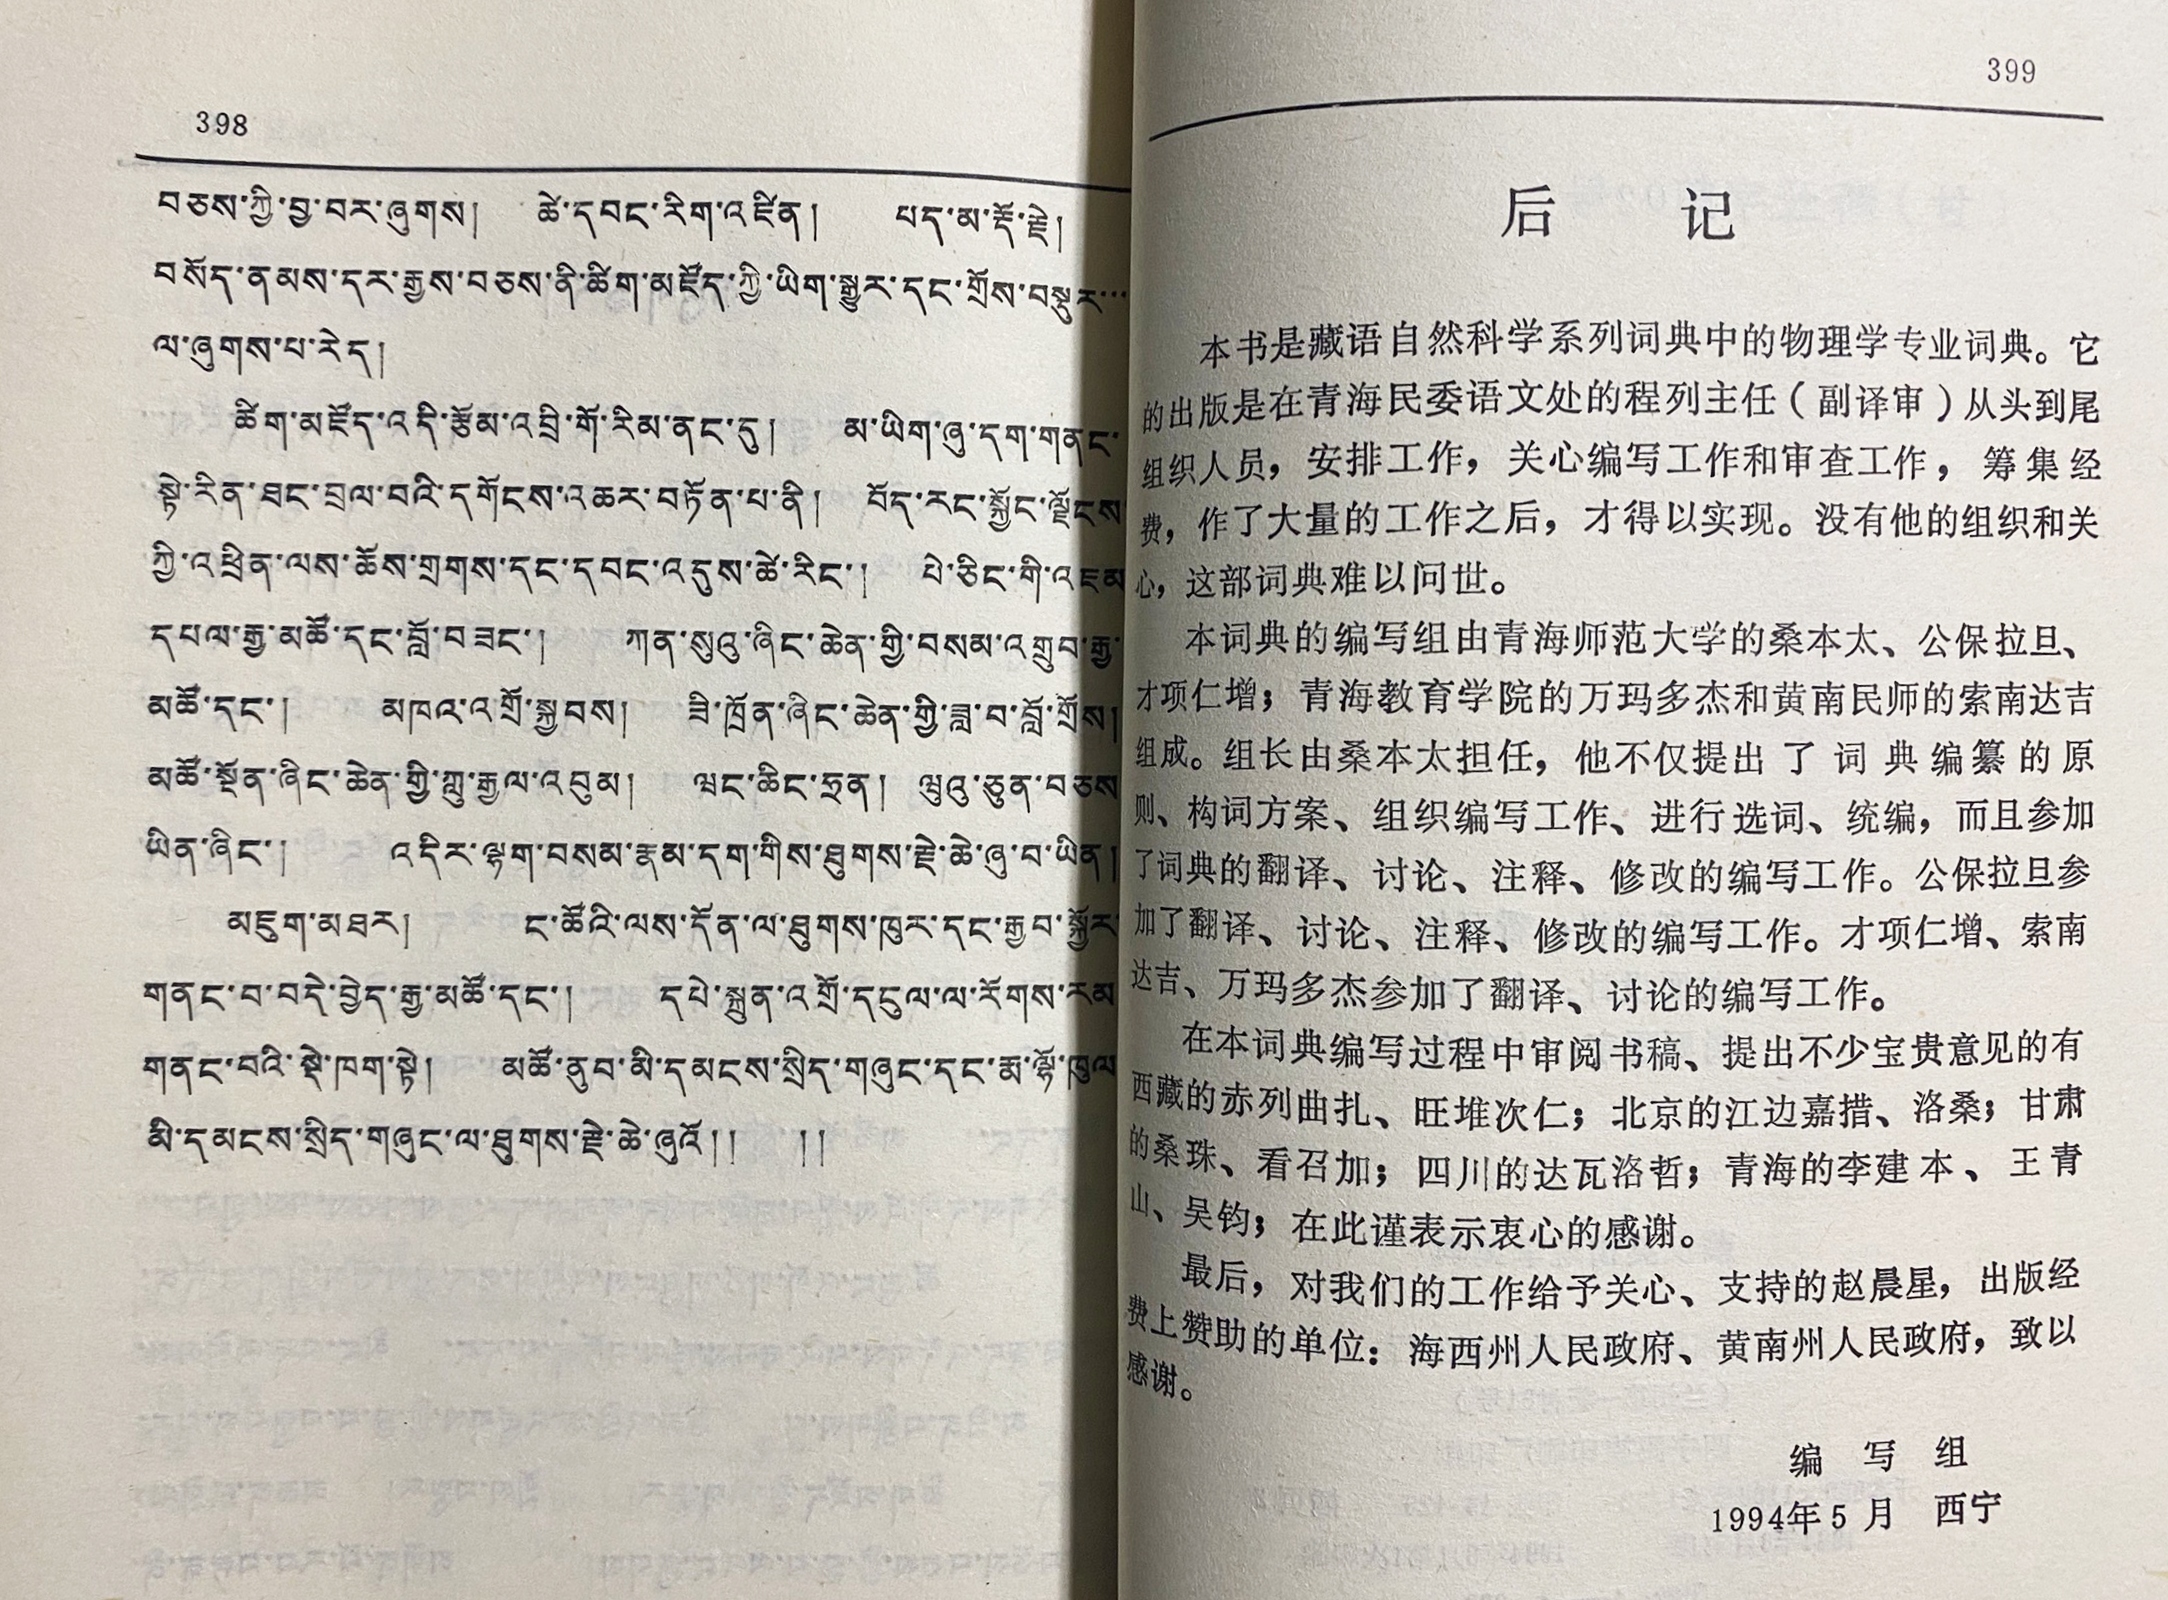 398
བཅས་ཀྱི་བྱ་བར་ཞུགས། ཚེ་དབང་རིག་འཛིན། པད་མ་རྡོ་རྗེ།
བསོད་ནམས་དར་རྒྱས་བཅས་ནི་ཚིག་མཛོད་ཀྱི་ཡིག་སྒྱུར་དང་གྲོས་བསྡུར…
ལ་ཞུགས་པ་རེད།
ཚིག་མཛོད་འདི་རྩོམ་འབྲི་གོ་རིམ་ནང་དུ། མ་ཡིག་ཞུ་དག་གནང་
སྟེ་རིན་ཐང་བྲལ་བའི་དགོངས་འཆར་བཏོན་པ་ནི། བོད་རང་སྐྱོང་ལྗོངས
ཀྱི་འཕྲིན་ལས་ཆོས་གྲགས་དང་དབང་འདུས་ཚེ་རིང་། པེ་ཅིང་གི་འཇམ
དཔལ་རྒྱ་མཚོ་དང་བློ་བཟང་། ཀན་སུའུ་ཞིང་ཆེན་གྱི་བསམ་འགྲུབ་རྒྱ་
མཚོ་དང་། མཁའ་འགྲོ་སྐྱབས། ཟི་ཁྲོན་ཞིང་ཆེན་གྱི་ཟླ་བ་བློ་གྲོས།
མཚོ་སྔོན་ཞིང་ཆེན་གྱི་ཀླུ་རྒྱལ་འབུམ། ཝང་ཆིང་ཧྲན། ཝུའུ་ཅུན་བཅས
ཡིན་ཞིང་། འདིར་ལྷག་བསམ་རྣམ་དག་གིས་ཐུགས་རྗེ་ཆེ་ཞུ་བ་ཡིན།
མཇུག་མཐར། ང་ཚོའི་ལས་དོན་ལ་ཐུགས་ཁུར་དང་རྒྱབ་སྐྱོར་
གནང་བ་བདེ་བྱེད་རྒྱ་མཚོ་དང་། དཔེ་སྐྲུན་འགྲོ་དངུལ་ལ་རོགས་རམ
གནང་བའི་སྡེ་ཁག་སྟེ། མཚོ་ནུབ་མི་དམངས་སྲིད་གཞུང་དང་རྨ་ལྷོ་ཁུལ
མི་དམངས་སྲིད་གཞུང་ལ་ཐུགས་རྗེ་ཆེ་ཞུའོ།། །།
399
后 记
本书是藏语自然科学系列词典中的物理学专业词典。它
的出版是在青海民委语文处的程列主任(副译审)从头到尾
组织人员，安排工作，关心编写工作和审查工作，筹集经
费，作了大量的工作之后，才得以实现。没有他的组织和关
心，这部词典难以问世。
本词典的编写组由青海师范大学的桑本太、公保拉旦、
才项仁增；青海教育学院的万玛多杰和黄南民师的索南达吉
组成。组长由桑本太担任，他不仅提出了词典编纂的原
则、构词方案、组织编写工作、进行选词、统编，而且参加
了词典的翻译、讨论、注释、修改的编写工作。公保拉旦参
加了翻译、讨论、注释、修改的编写工作。才项仁增、索南
达吉、万玛多杰参加了翻译、讨论的编写工作。
在本词典编写过程中审阅书稿、提出不少宝贵意见的有
西藏的赤列曲扎、旺堆次仁；北京的江边嘉措、洛桑；甘肃
的桑珠、看召加；四川的达瓦洛哲；青海的李建本、王青
山、吴钧；在此谨表示衷心的感谢。
最后，对我们的工作给予关心、支持的赵晨星，出版经
费上赞助的单位：海西州人民政府、黄南州人民政府，致以
感谢。
编 写 组
1994年5月 西宁